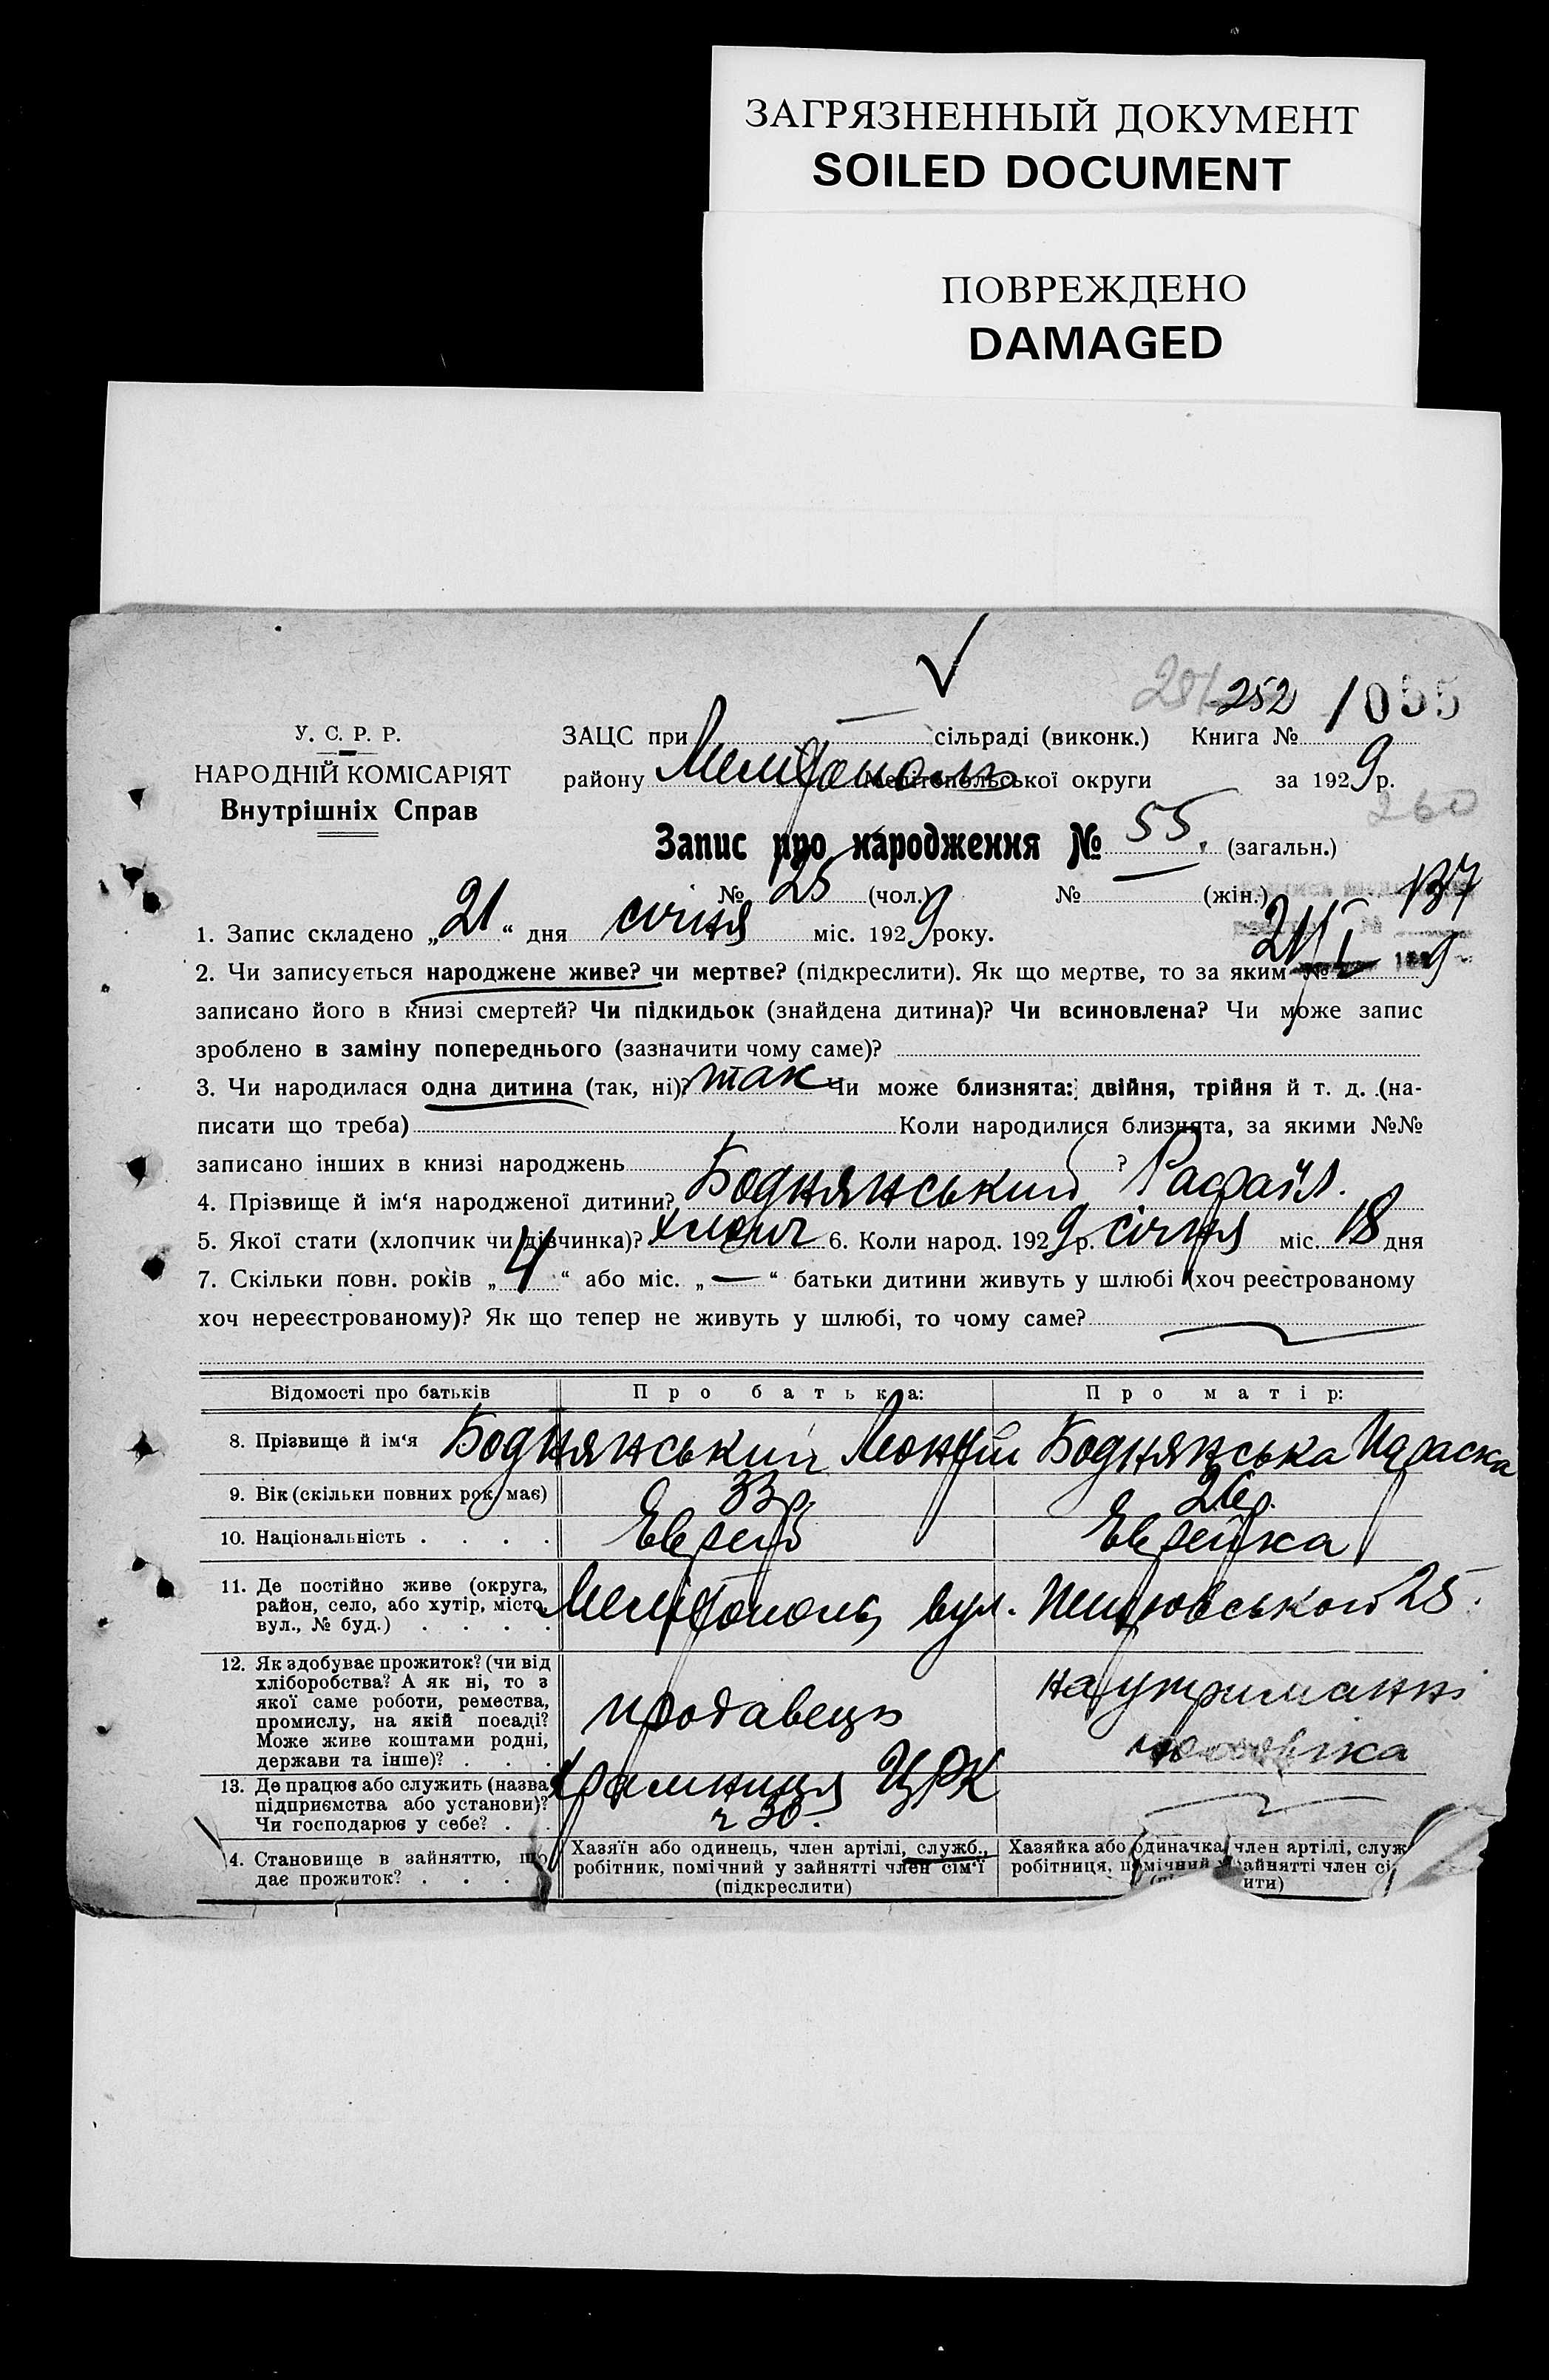 ЗАГРЯЗНЕННЫЙ ДОКУМЕНТ
SOILED DOCUMENT
ПОВРЕЖДЕНО
DAMAGED
252 1055
У. С. Р. Р.
НАРОДНІЙ КОМІСАРІЯТ
Внутрішніх Справ
ЗАЦС при — сільраді (виконк.) Книга №
району Мелітополь Мелітопольської округи за 1929 р.
260
Запис про народження № 55. (загальн.)
№ 25 (чол.) № — (жін.) 137
1. Запис складено „21“ дня січня міс. 1929 року.
21/I 9
2. Чи записується народжене живе? чи мертве? (підкреслити). Як що мертве, то за яким №
записано його в книзі смертей? Чи підкидьок (знайдена дитина)? Чи всиновлена? Чи може запис
зроблено в заміну попереднього (зазначити чому саме)?
3. Чи народилася одна дитина (так, ні)? так Чи може близнята: двійня, трійня й т. д. (на-
писати що треба) Коли народилися близнята, за якими №№
записано інших в книзі народжень ?
4. Прізвище й ім‘я народженої дитини? Боднянський Рафаїл.
5. Якої стати (хлопчик чи дівчинка)? хлопч 6. Коли народ. 1929 р. січня міс. 18 дня
7. Скільки повн. років „4“ або міс. „—“ батьки дитини живуть у шлюбі (хоч реєстрованому
хоч нереєстрованому)? Як що тепер не живуть у шлюбі, то чому саме?
Відомості про батьків Про батька: Про матір:
8. Прізвище й ім‘я Боднянський Боднянська
9. Вік (скільки повних рок. має) 33 р. 26 р.
10. Національність . . . . Еврей Еврейка
11. Де постійно живе (округа,
район, село, або хутір, місто,
вул., № буд.) . . . .
Мелітополь, вул. 25.
12. Як здобуває прожиток? (чи від
хліборобства? А як ні, то з
якої саме роботи, ремества,
промислу, на якій посаді?
Може живе коштами родні,
держави та інше)? . . .
продавець
на утриманні
чоловіка
13. Де працює або служить (назва
підприємства або установи)?
Чи господарює у себе? . .
крамниця ЦРК
ч 30.
14. Становище в зайняттю, що
дає прожиток? . . . .
Хазяїн або одинець, член артілі, служб.,
робітник, помічний у зайнятті член сім‘ї
(підкреслити)
Хазяйка або одиначка, член артілі, служ
робітниця, помічний зайнятті член сі
ити)